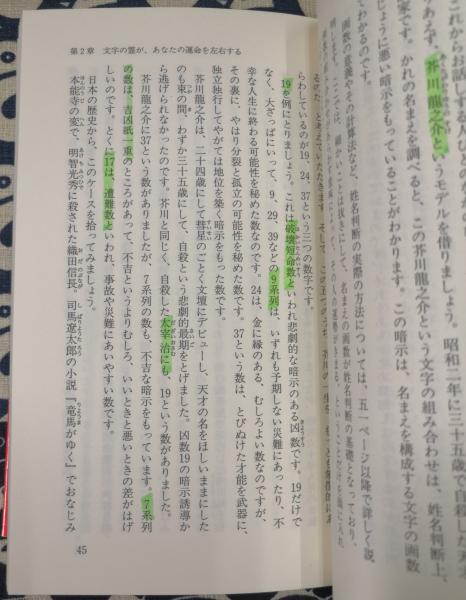 これからお話しするとき
りあえず、芥川龍之介というモデルを借りましょう。昭和二年に三十五歳で自殺した天
家です。かれの名まえを調べると、この芥川龍之介という文字の組み合わせは、姓名判断上、
じょうに悪い暗示をもっていることがわかります。この暗示は、名まえを構成する文字の画数
てわかるのです。
画数の意義やその計算法など、姓名判断の実際の方法については、五一ページ以降で詳しく説
らわしているのが19、24、37という三つの数字です。
19を例にとりましょう。これは破壊短命数といわれ悲劇的な暗示のある凶数です。19だけで
なく、大ざっぱにいって、9、29、39などの9系列は、いずれも予期しない災難にあったり、不
幸な人生に終わる可能性を秘めた数なのです。24は、金に縁のある、むしろよい数なのですが、
その裏に、やはり分裂と孤立の可能性を秘めた数です。37という数は、とびぬけた才能を武器に、
独立独行してやがては地位を築く暗示をもった数です。
芥川龍之介は、二十四歳にして彗星のごとく文壇にデビューし、天才の名をほしいままにした
のも束の間、わずか三十五歳にして、自殺という悲劇的最期をとげました。凶数19の暗示誘導か
ら逃げられなかったのです。芥川と同じく、自殺した太宰治にも、19という数がありました。
芥川龍之介に37という数がありましたが、7系列の数も、不吉な暗示をもっています。7系列
の数は、吉凶紙一重のところがあって、不吉というよりむしろ、いいときと悪いときの差がはげ
しいのです。とくに17は、遭難数といわれ、事故や災難にあいやすい数です。
日本の歴史から、このケースを拾ってみましょう。
本能寺の変で、明智光秀に殺された織田信長。司馬遼太郎の小説『竜馬がゆく』でおなじみ
第2章　文字の霊が、あなたの運命を左右する
45